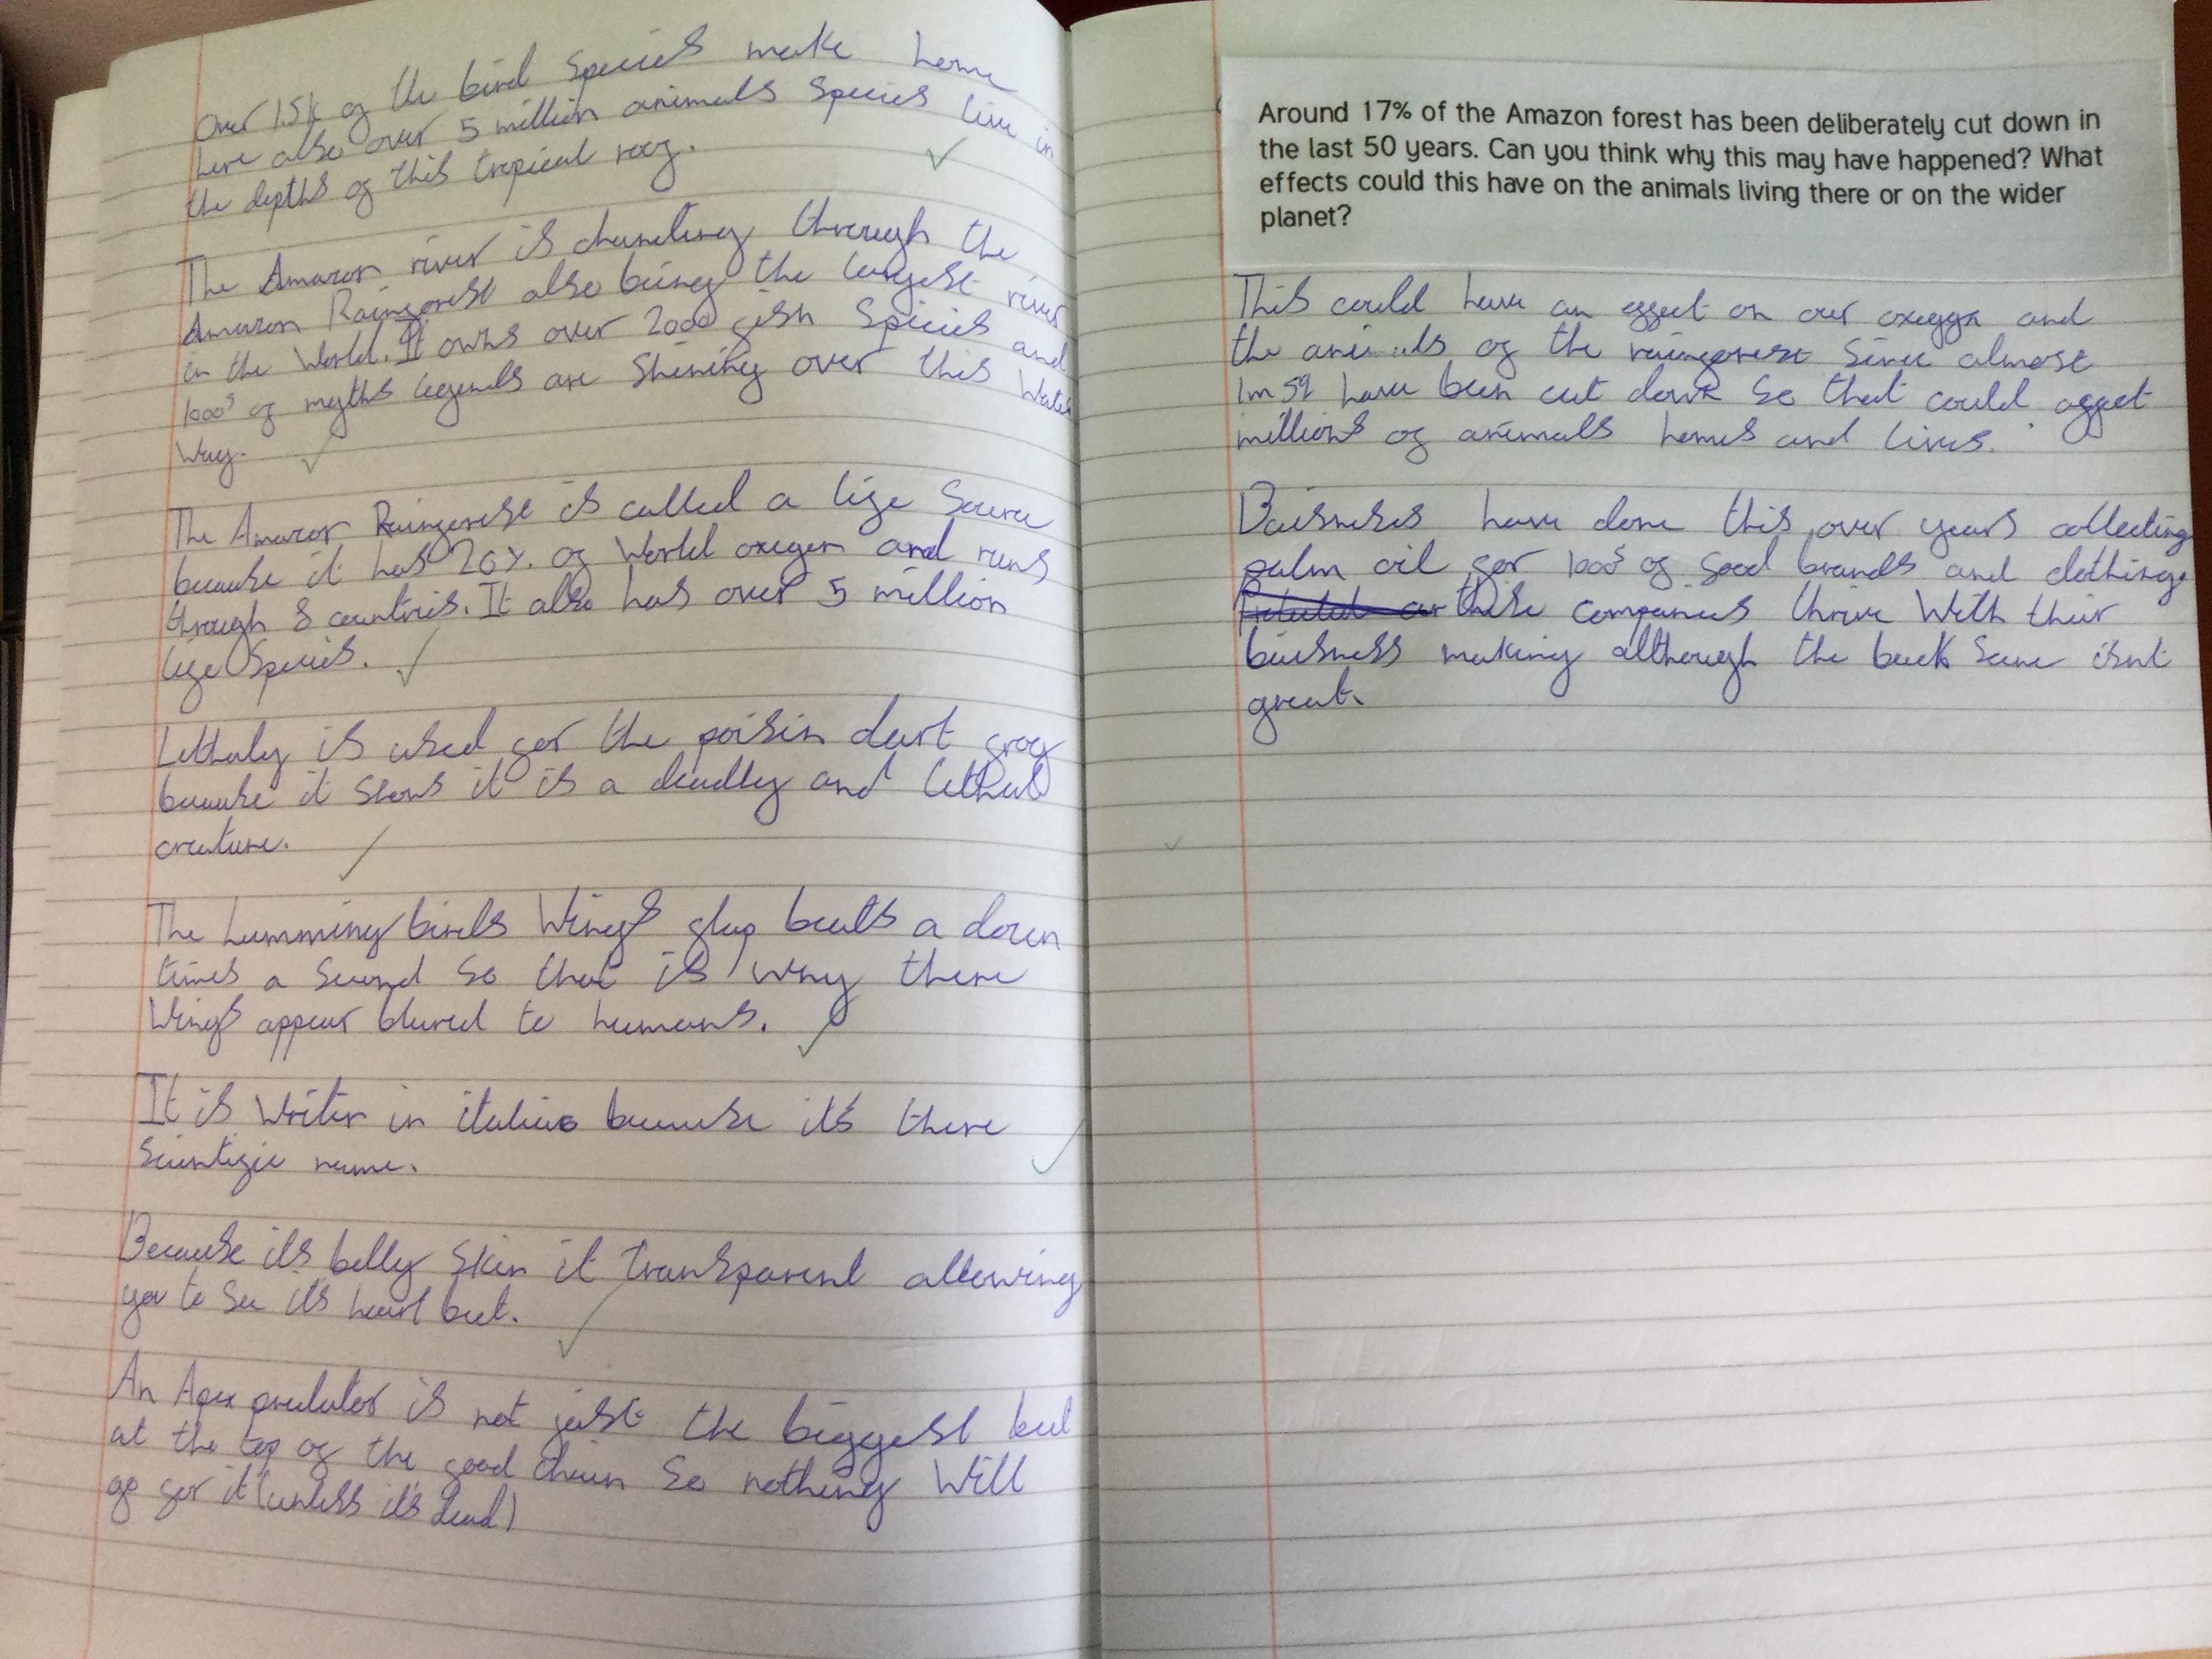 Over 1.5k of the bird species make home
here also over 5 million animals species live in
the depths of this tropical roof.
The Amazon river is chanting through the
Amazon Rainforest also being the largest river
in the World. It owns over 2000 fish species and
1000s of myths legends are shining over this Water
Way.
The Amazon Rainforest is called a life source
because it has 20% of World oxegen and runs
through 8 countris. It also has over 5 million
life species.
Lethaly is used for the poisin dart frog
because it shows it is a deadly and lethal
creature.
The humming birds Wings flap beats a dozen
times a second so that is why there
Wings appear blured to humans.
It is Writen in italics because it's there
scientific name.
Because its belly skin it transparent allowing
you to see it's heart beat.
An Apex predator is not just the biggest but
at the top of the food chain so nothing Will
go for it (unless it's dead)
Around 17% of the Amazon forest has been deliberately cut down in
the last 50 years. Can you think why this may have happened? What
effects could this have on the animals living there or on the wider
planet?
This could have an effect on our and
the animals of the rainforest since almost
1m sq have been cut down so that could affect
millions of animals homes and lives.
Buisneses have done this over years collecting
palm oil for 1000s of food brands and clothing
these companies thrive With their
buisness making although the back scene isnt
great.